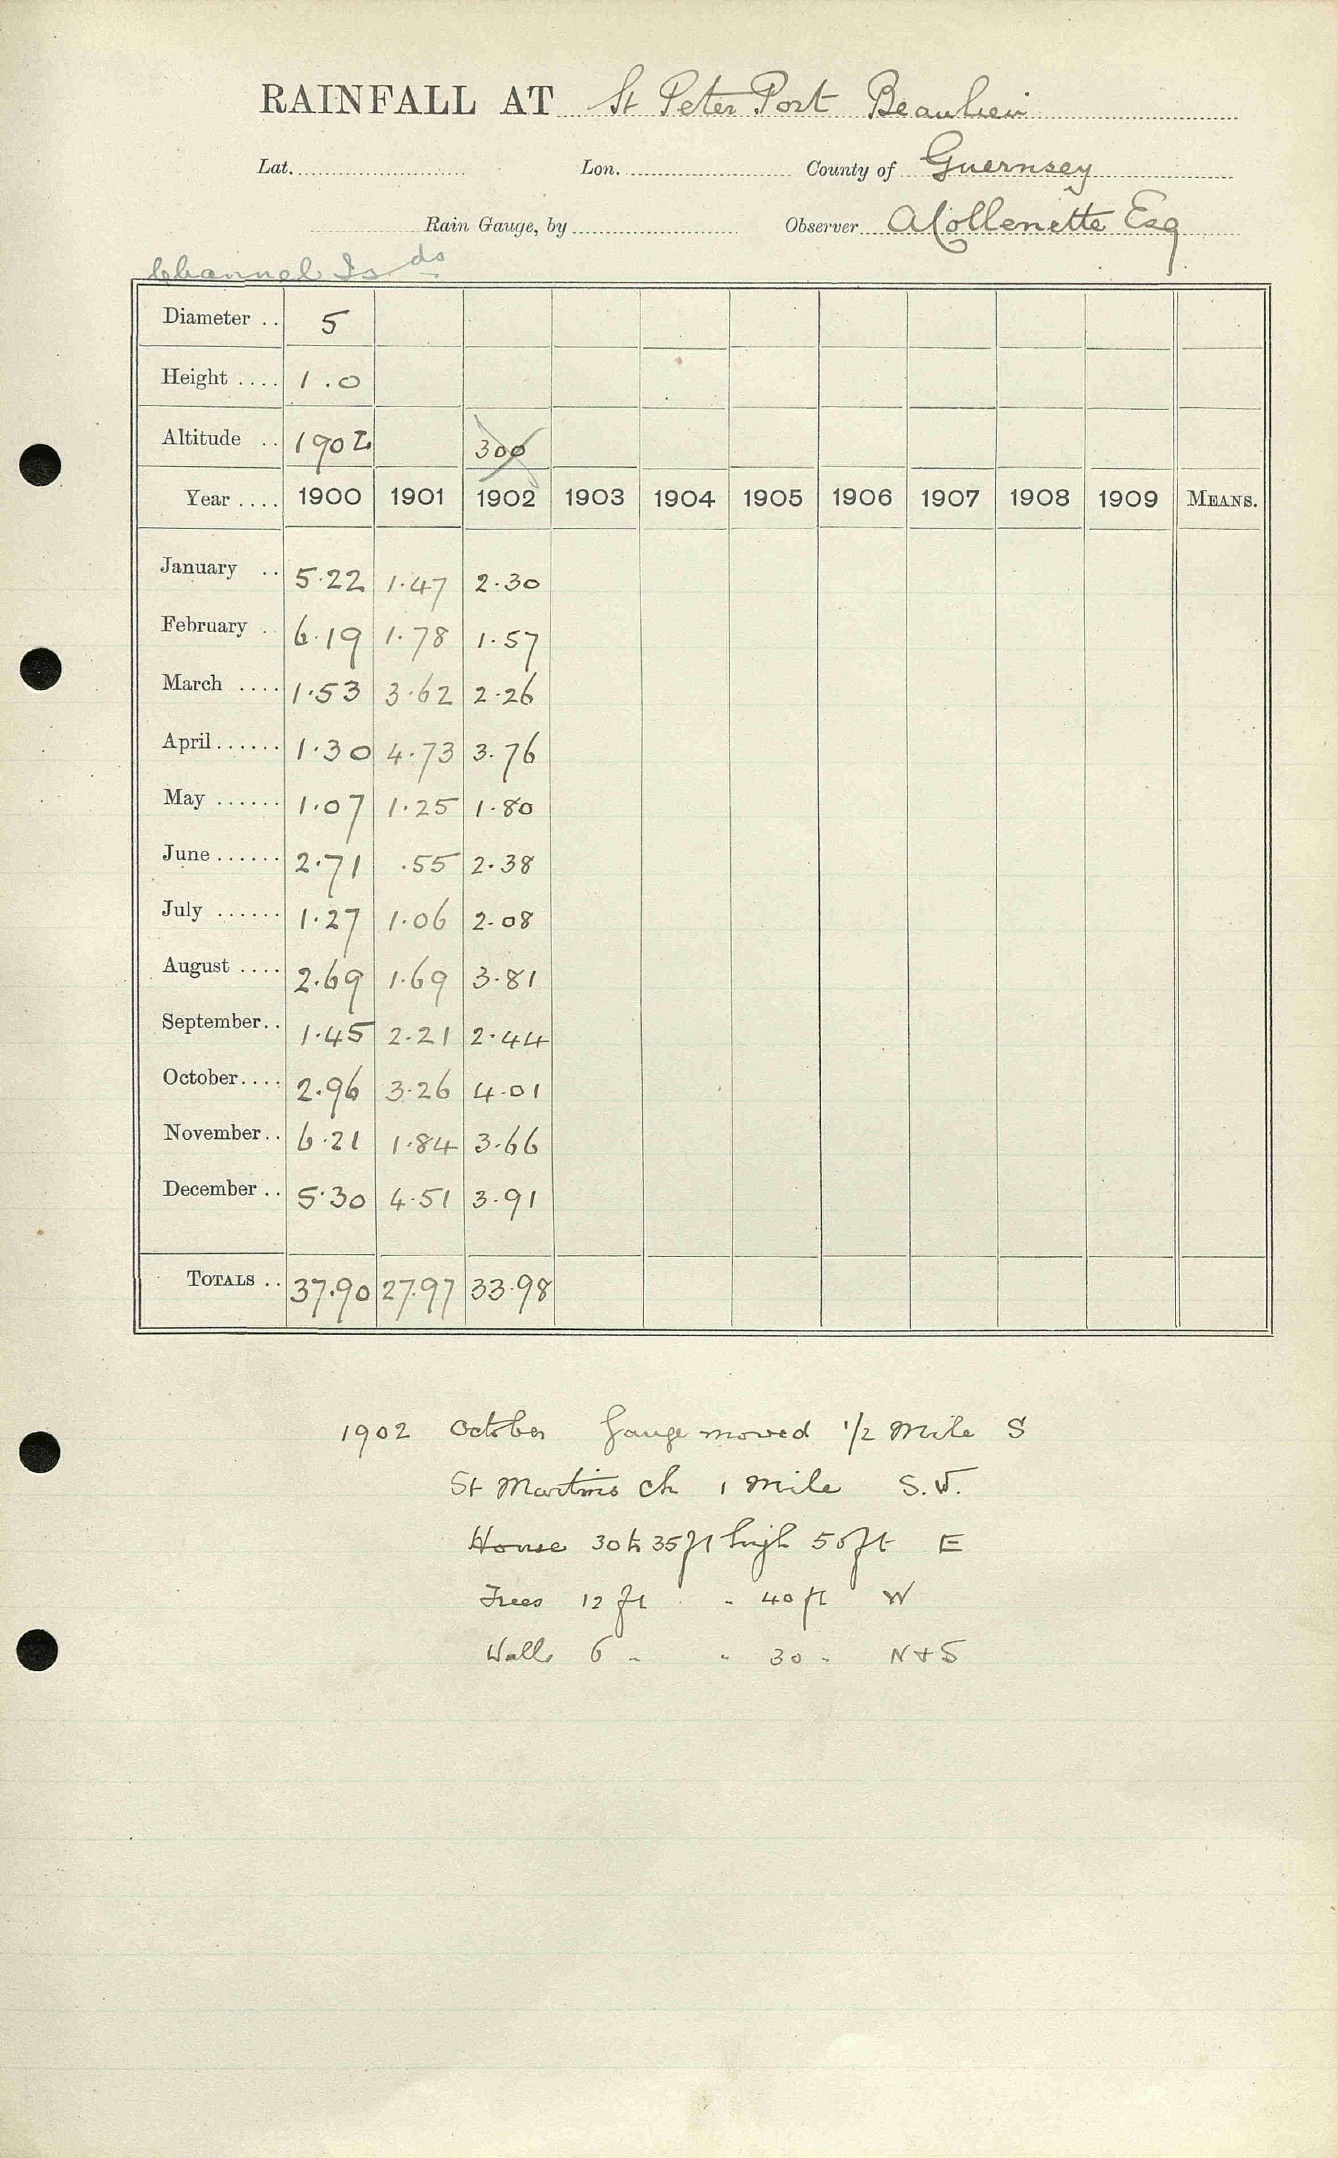 RAINFALL AT St Peter Port Beaulieu
Lat. Lon. County of Guernsey
Rain Gauge, by Observer A Collenette Esq
Channel Is ds
Diameter .. 5
Height .... 1.0
Altitude .. 1902 300
Year .... 1900 1901 1902 1903 1904 1905 1906 1907 1908 1909 MEANS.
January .. 5.22 1.47 2.30
February .. 6.19 1.78 1.57
March .... 1.53 3.62 2.26
April...... 1.30 4.73 3.76
May ...... 1.07 1.25 1.80
June...... 2.71 .55 2.38
July ...... 1.27 1.06 2.08
August .... 2.69 1.69 3.81
September.. 1.45 2.21 2.44
October.... 2.96 3.26 4.01
November.. 6.21 1.84 3.66
December .. 5.30 4.51 3.91
TOTALS .. 37.90 27.97 33.98
1902 October Gauge moved 1/2 Mile S
St Martins Ch 1 Mile S.W.
House 30 to 35 ft high 50 ft E
Trees 12 ft " 40 ft W
Walls 6 " " 30 " N + S